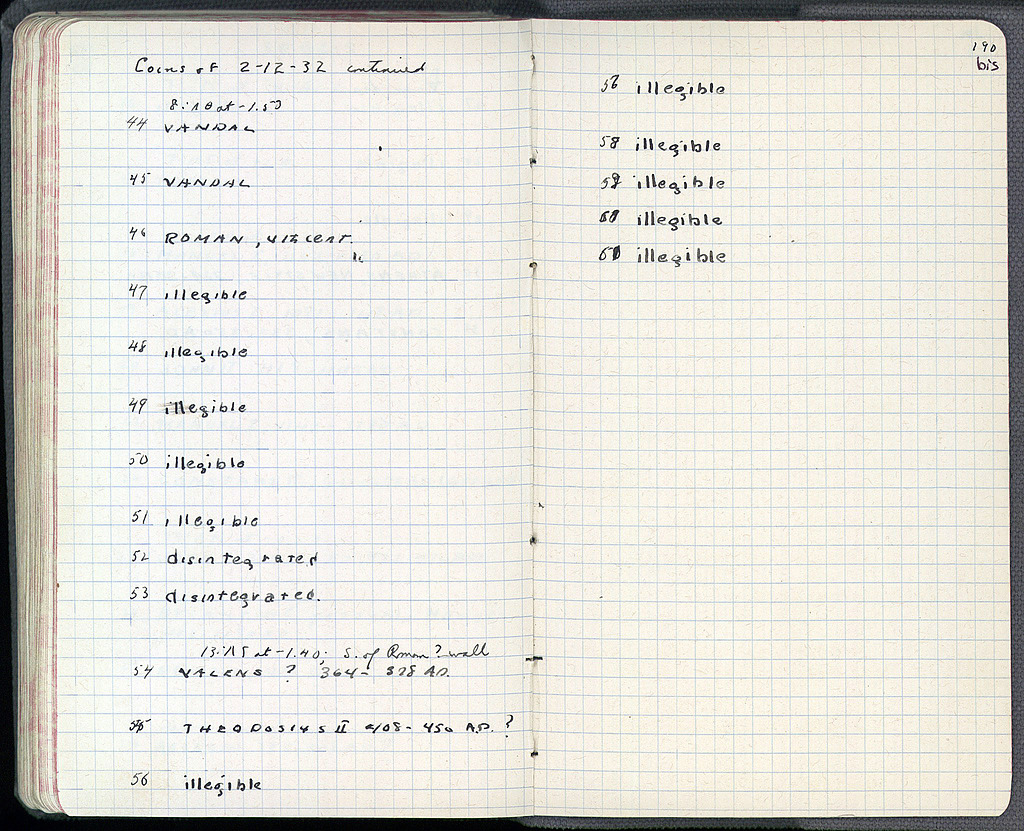 Coins of 2-12-32 continued
8:10 at -1.50
44 VANDAL
45 VANDAL
46 ROMAN, VI CENT.
47 illegible
48 illegible
49 illegible
50 illegible
51 illegible
52 disintegrated
53 disintegrated.
13:15 at -1.40; S. of Roman? wall
54 VALENS ? 364- 378 A.D.
55 THEODOSIUS II 408- 450 A.D. ?
56 illegible
190
bis
56 illegible
58 illegible
59 illegible
60 illegible
61 illegible